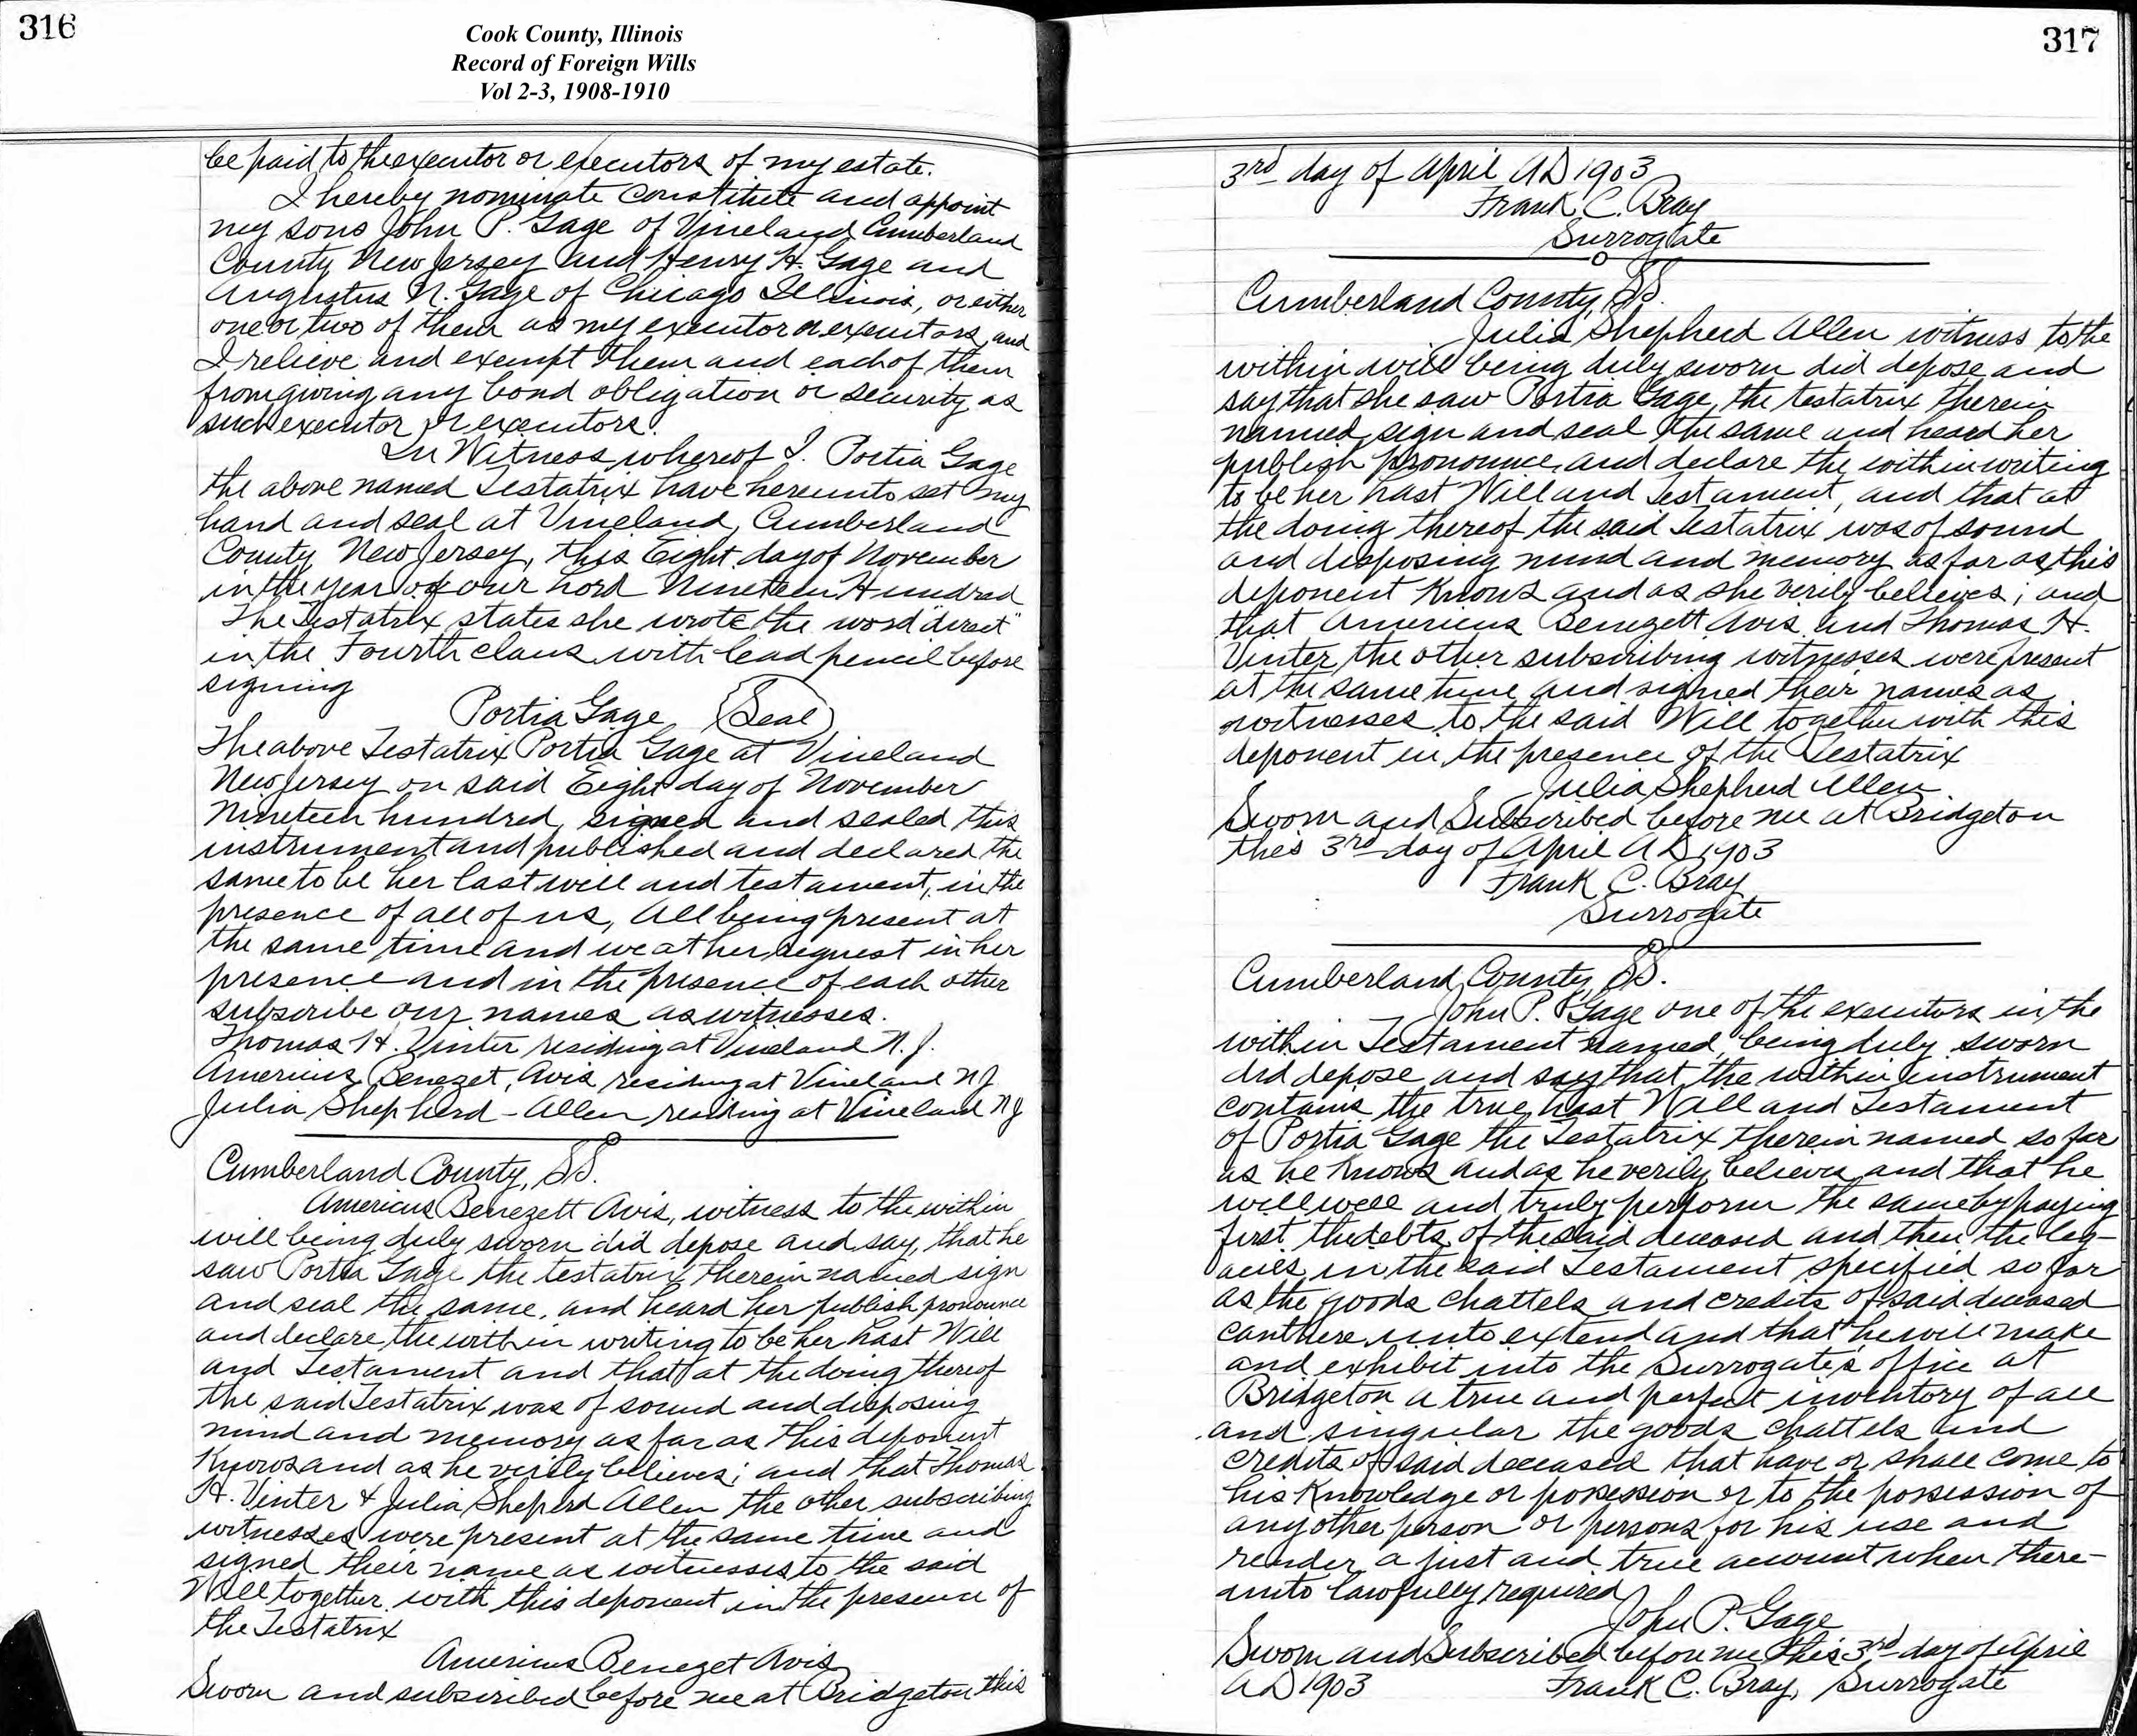 316
Cook County, Illinois
Record of Foreign Wills
Vol 2-3, 1908-1910
be paid to the executor or executors of my estate.
I hereby nominate constitute and appoint
my sons John P. Gage of Vineland Cumberland
County New Jersey and Henry H. Gage and
Augustus N. Gage of Chicago Illinois, or either
one or two of them as my executor or executors, and
I relieve and exempt them and each of them
from giving any bond obligation or security as
such executor or executors.
In Witness whereof I. Portia Gage
the above named Testatrix have hereunto set my
hand and seal at Vineland, Cumberland
County New Jersey, this Eight day of November
in the year of our Lord Nineteen Hundred
The Testatrix states she wrote the word "direct"
in the Fourth claus with lead pencil before
signing
Portia Gage (Seal)
The above Testatrix Portia Gage at Vineland
New Jersey on said Eight day of November
Nineteen hundred, signed and sealed this
instrument and published and declared the
same to be her last will and testament, in the
presence of all of us, All being present at
the same time and we at her request in her
presence and in the presence of each other
subscribe our names as witnesses.
Thomas H. Vinter residing at Vineland N. J.
Americus Benezet, Avis residing at Vineland NJ
Julia Shepherd-Allen residing at Vineland NJ
Cumberland County, SS.
Americus Benezett Avis, witness to the within
will being duly sworn did depose and say, that he
saw Portia Gage the testatrix therein named sign
and seal the same, and heard her publish pronounce
and declare the within writing to be her Last Will
and Testament and that at the doing thereof
the said Testatrix was of sound and disposing
mind and memory as far as this deponent
Knows and as he verily believes; and that Thomas
H. Vinter & Julia Sheperd Allen the other subscribing
witnesses were present at the same time and
signed their name as witnesses to the said
Will together with this deponent in the presence of
the Testatrix
Americus Benezet Avis
Sworn and subscribed before me at Bridgeton this
317
3rd day of April AD 1903
Frank C. Bray
Surrogate
Cumberland County, SS.
Julia Shepherd Allen witness to the
within will being duly sworn did depose and
say that she saw Portia Gage, the testatrix therein
named, sign and seal the same and heard her
publish pronounce, and declare the within writing
to be her Last Will and Testament, and that at
the doing thereof the said Testatrix was of sound
and disposing mind and memory as far as this
deponent Knows and as she verily believes; and
that Americus Benezett Avis and Thomas H.
Vinter, the other subscribing witnesses were present
at the same time and signed their names as
witnesses to the said Will together with this
deponent in the presence of the Testatrix
Julia Shepherd Allen
Sworn and Subscribed before me at Bridgeton
this 3rd day of April AD 1903
Frank C. Bray
Surrogate
Cumberland County, SS.
John P. Gage one of the executors in the
within Testament named, being duly sworn
did depose and say that the within instrument
contains the true Last Will and Testament
of Portia Gage the Testatrix therein named so far
as he Knows and as he verily believes and that he
will well and truly perform the same by paying
first the debts of the said deceased and then the leg-
acies in the said Testament specified so far
as the goods chattels and credits of said deceased
can there unto extend and that he will make
and exhibit into the Surrogate's office at
Bridgeton a true and perfect inventory of all
and singular the goods chattels and
credits of said deceased that have or shall come to
his Knowledge or possession or to the possession of
any other person or persons for his use and
render a just and true account when there-
unto lawfully required
John P. Gage
Sworn and Subscribed before me this 3rd day of April
AD 1903 Frank C. Bray, Surrogate